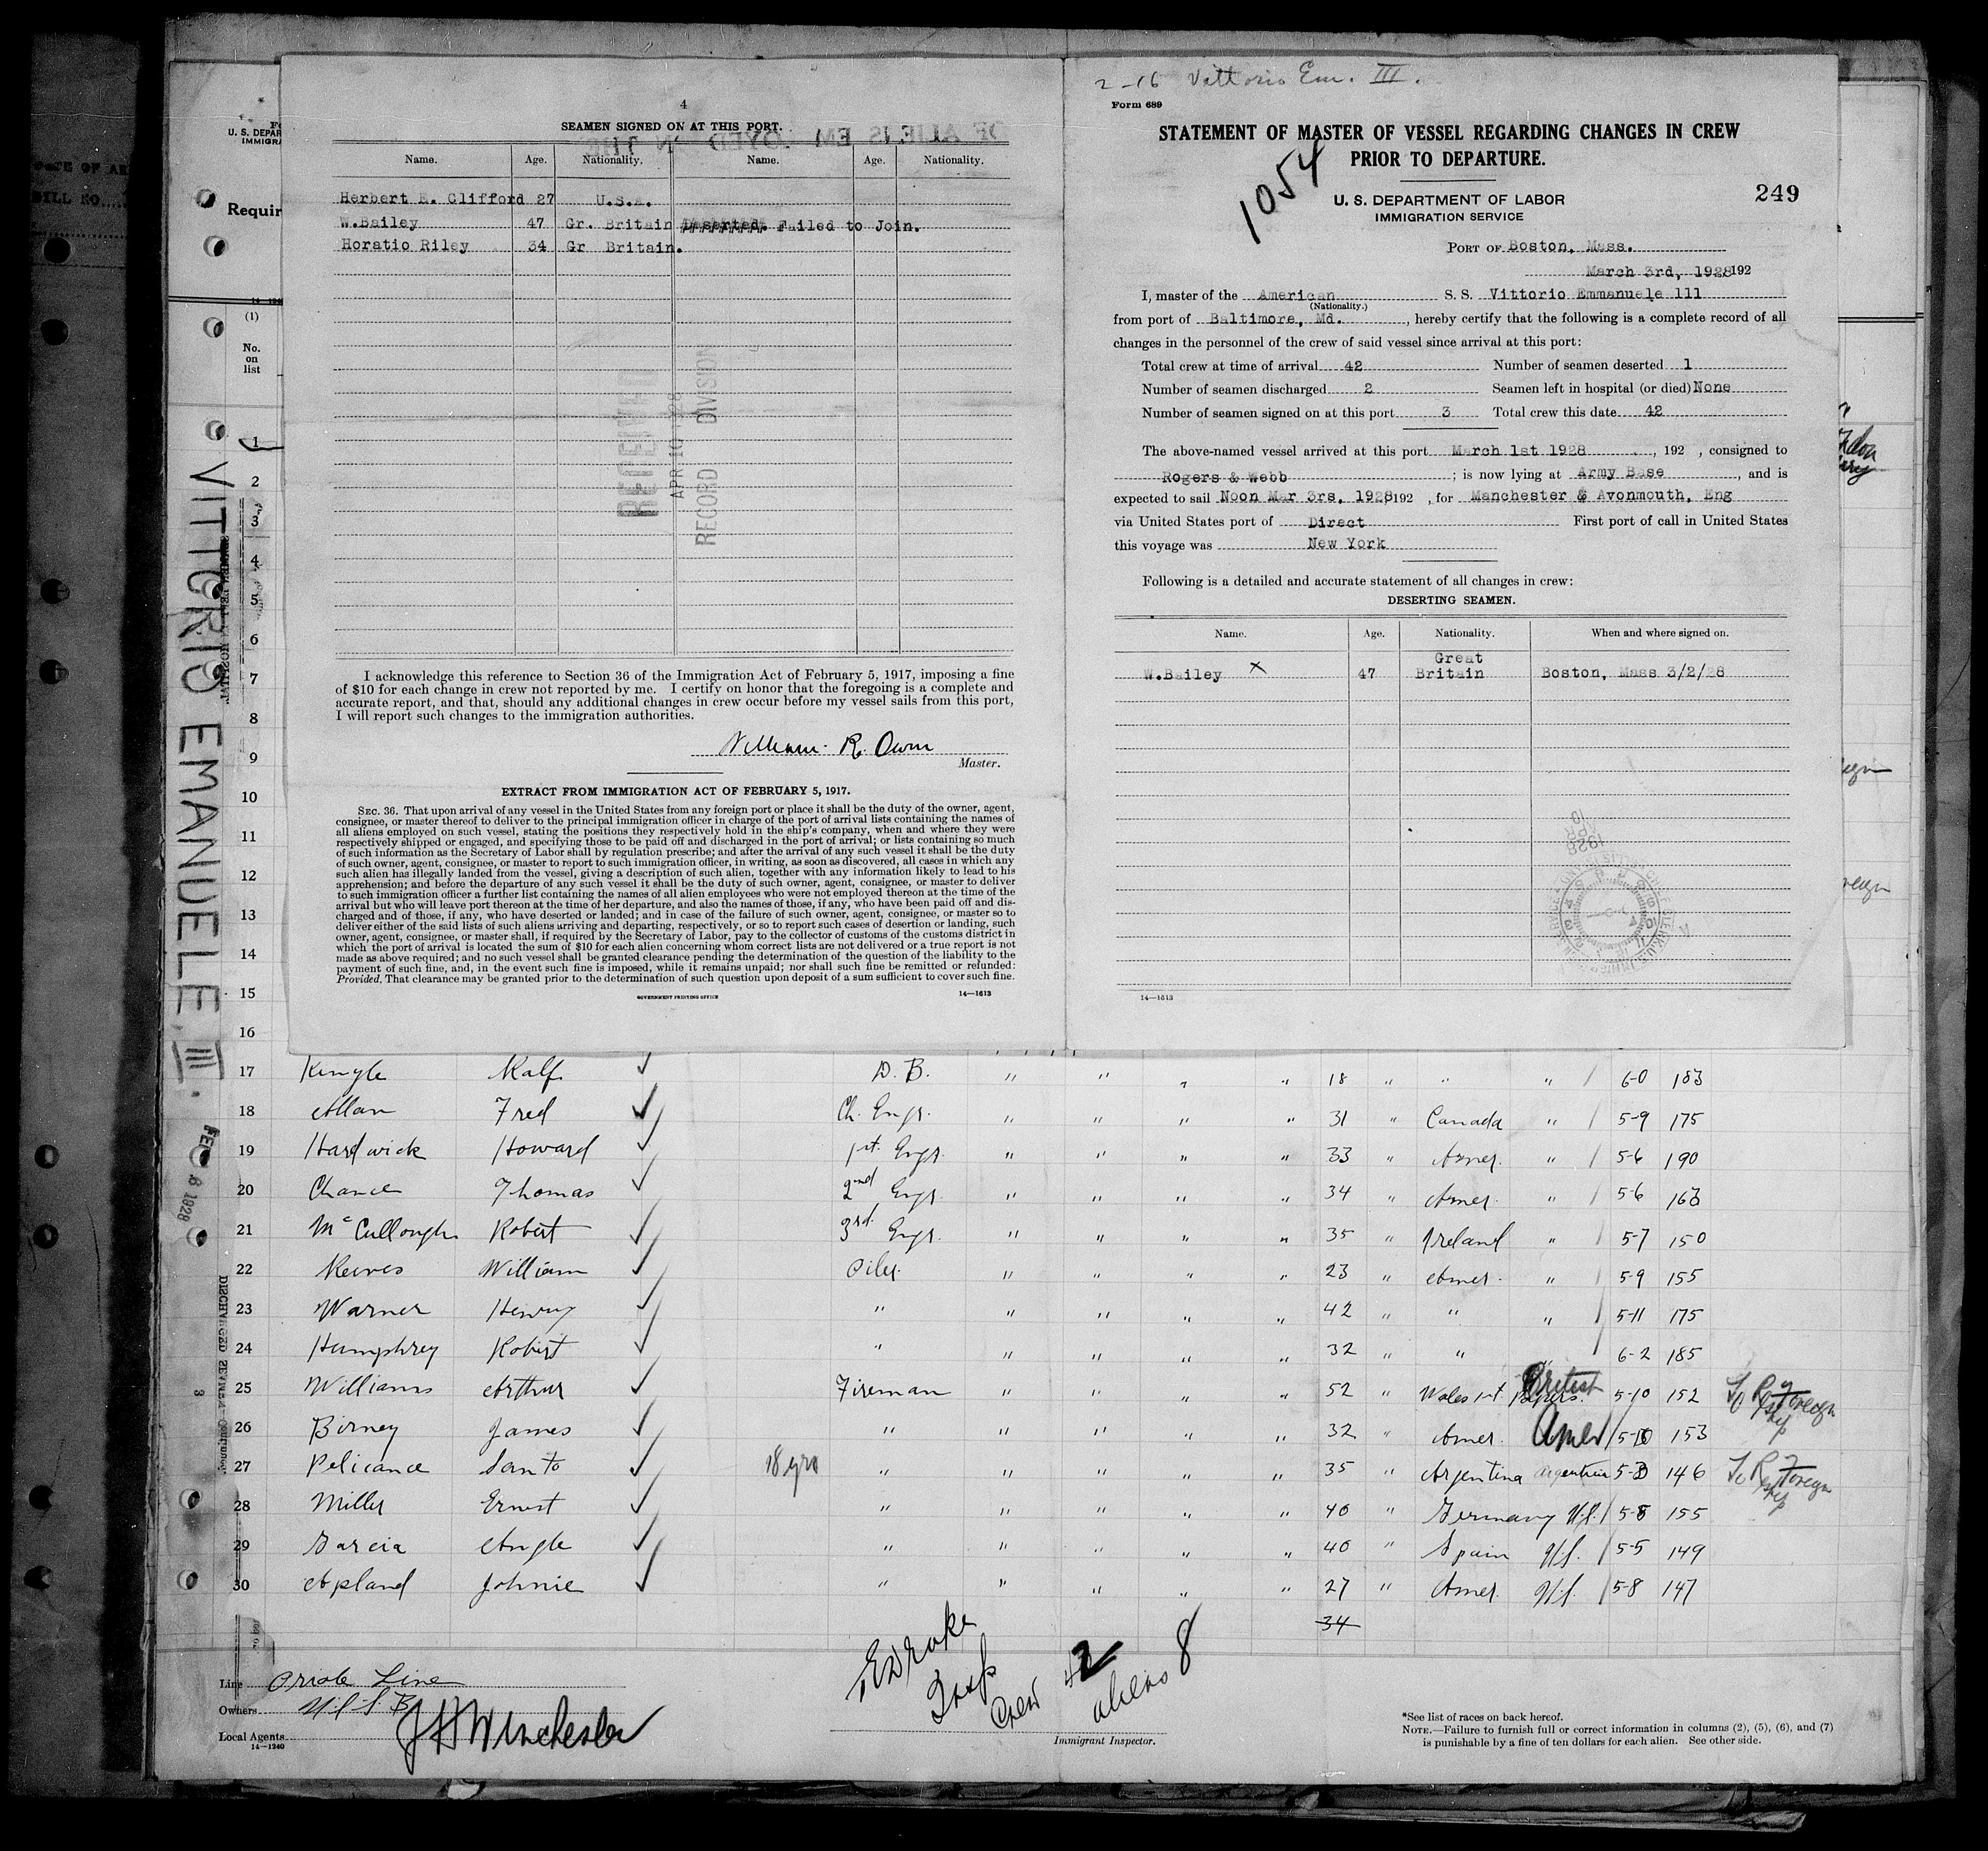 4
SEAMEN SIGNED ON AT THIS PORT.
Name. Age. Nationality. Name. Age. Nationality.
Herbert E. Clifford 27 U.S.A.
W.Bailey 47 Gr. Britain Deserted. Failed to Join.
Horatio Riley 34 Gr Britain.
RECEIVED
APR 10 1928
RECORD DIVISION
I acknowledge this reference to Section 36 of the Immigration Act of February 5, 1917, imposing a fine
of $10 for each change in crew not reported by me. I certify on honor that the foregoing is a complete and
accurate report, and that, should any additional changes in crew occur before my vessel sails from this port,
I will report such changes to the immigration authorities.
William R. Owen
Master.
EXTRACT FROM IMMIGRATION ACT OF FEBRUARY 5, 1917.
SEC. 36. That upon arrival of any vessel in the United States from any foreign port or place it shall be the duty of the owner, agent,
consignee, or master thereof to deliver to the principal immigration officer in charge of the port of arrival lists containing the names of
all aliens employed on such vessel, stating the positions they respectively hold in the ship's company, when and where they were
respectively shipped or engaged, and specifying those to be paid off and discharged in the port of arrival; or lists containing so much
of such information as the Secretary of Labor shall by regulation prescribe; and after the arrival of any such vessel it shall be the duty
of such owner, agent, consignee, or master to report to such immigration officer, in writing, as soon as discovered, all cases in which any
such alien has illegally landed from the vessel, giving a description of such alien, together with any information likely to lead to his
apprehension; and before the departure of any such vessel it shall be the duty of such owner, agent, consignee, or master to deliver
to such immigration officer a further list containing the names of all alien employees who were not employed thereon at the time of the
arrival but who will leave port thereon at the time of her departure, and also the names of those, if any, who have been paid off and dis-
charged and of those, if any, who have deserted or landed; and in case of the failure of such owner, agent, consignee, or master so to
deliver either of the said lists of such aliens arriving and departing, respectively, or so to report such cases of desertion or landing, such
owner, agent, consignee, or master shall, if required by the Secretary of Labor, pay to the collector of customs of the customs district in
which the port of arrival is located the sum of $10 for each alien concerning whom correct lists are not delivered or a true report is not
made as above required; and no such vessel shall be granted clearance pending the determination of the question of the liability to the
payment of such fine, and, in the event such fine is imposed, while it remains unpaid; nor shall such fine be remitted or refunded:
Provided, That clearance may be granted prior to the determination of such question upon deposit of a sum sufficient to cover such fine.
GOVERNMENT PRINTING OFFICE 14—1613
2-16 Vittorio Em. III.
Form 689
STATEMENT OF MASTER OF VESSEL REGARDING CHANGES IN CREW
PRIOR TO DEPARTURE.
1054
U. S. DEPARTMENT OF LABOR
IMMIGRATION SERVICE
249
PORT OF Boston, Mass.
March 3rd, 1928 192
I, master of the American S. S. Vittorio Emmanuele 111
(Nationality.)
from port of Baltimore, Md. , hereby certify that the following is a complete record of all
changes in the personnel of the crew of said vessel since arrival at this port:
Total crew at time of arrival 42 Number of seamen deserted 1
Number of seamen discharged 2 Seamen left in hospital (or died) None
Number of seamen signed on at this port 3 Total crew this date 42
The above-named vessel arrived at this port March 1st 1928 , 192 , consigned to
Rogers & Webb ; is now lying at Army Base , and is
expected to sail Noon Mar 3rs, 1928 192 , for Manchester & Avonmouth, Eng
via United States port of Direct First port of call in United States
this voyage was New York
Following is a detailed and accurate statement of all changes in crew:
DESERTING SEAMEN.
Name. Age. Nationality. When and where signed on.
W.Bailey x 47 Great Britain Boston, Mass 3/2/28
14—1613
U. S. DEPAR
IMMIGRA
Requir
(1)
No.
on
list
1
2
3
4
5
6
7
8
9
10
11
12
13
14
15
16
VITTORIO EMANUELE III.
FEB 6 1928
17 Kingle Ralf D. B. " " " " 18 " " " / 6-0 183
18 Allan Fred Ch. Engr. " " " " 31 " Canada " / 5-9 175
19 Hardwick Howard 1st. Engr. " " " " 33 " Amer. " / 5-6 190
20 Chance Thomas 2nd Engr. " " " " 34 " Amer. " / 5-6 163
21 McCullough Robert 3rd. Engr. " " " " 35 " Ireland " / 5-7 150
22 Reeves William Oiler. " " " " 23 " Amer. " / 5-9 155
23 Warner Henry " " " " " 42 " " " / 5-11 175
24 Humphrey Robert " " " " " 32 " " " / 6-2 185
25 Williams Arthur Fireman " " " " 52 " Wales 1st Papers. British 5-10 152 To Reship Foreign
26 Birney James " " " " " 32 " Amer. Amer / 5-10 153
27 Pelicance Santo 18 yrs " " " " " 35 " Argentina Argentina 5-3 146 To Reship Foreign
28 Miller Ernest " " " " " 40 " Germany U.S. / 5-8 155
29 Garcia Angle " " " " " 40 " Spain U.S. / 5-5 149
30 Apland Johnie " " " " " 27 " Amer. U.S. / 5-8 147
34
Line Oriole Line
Owners U.S.S.B.
Local Agents JH Winchester
14—1240
E Drake
Insp
Crew 42
aliens 8
Immigrant Inspector.
*See list of races on back hereof.
NOTE.—Failure to furnish full or correct information in columns (2), (5), (6), and (7)
is punishable by a fine of ten dollars for each alien. See other side.